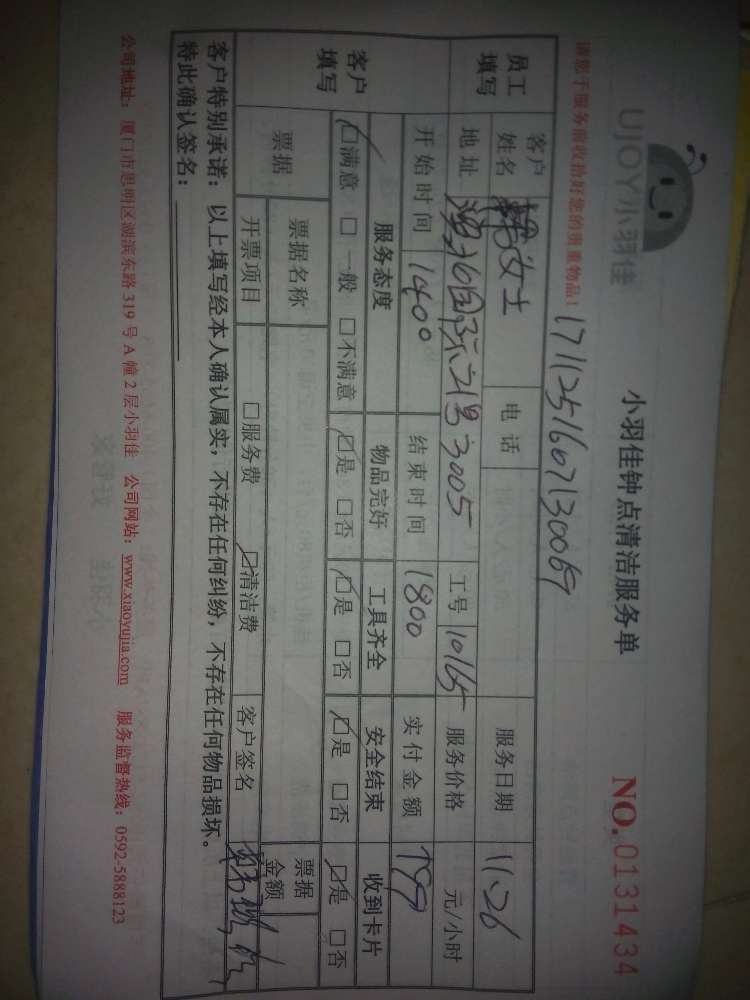 UJOY小羽佳
小羽佳钟点清洁服务单
NO.0131434
请您于服务前收拾好您的贵重物品！
1711251607130069
员工填写
客户姓名 韩女士 电话 服务日期 11.26
地址 国际21号3005 工号 10165 服务价格 元/小时
开始时间 1400 结束时间 1800 实付金额 199
客户填写
服务态度 物品完好 工具齐全 安全结束 收到卡片
☑满意 □一般 □不满意 ☑是 □否 ☑是 □否 ☑是 □否 ☑是 □否
票据 票据名称 票据金额
开票项目 □服务费 ☑清洁费 客户签名
客户特别承诺：以上填写经本人确认属实，不存在任何纠纷，不存在任何物品损坏。
特此确认签名：
公司地址：厦门市思明区湖滨东路319号A幢2层小羽佳 公司网站：www.xiaoyujia.com 服务监督热线：0592-5888123